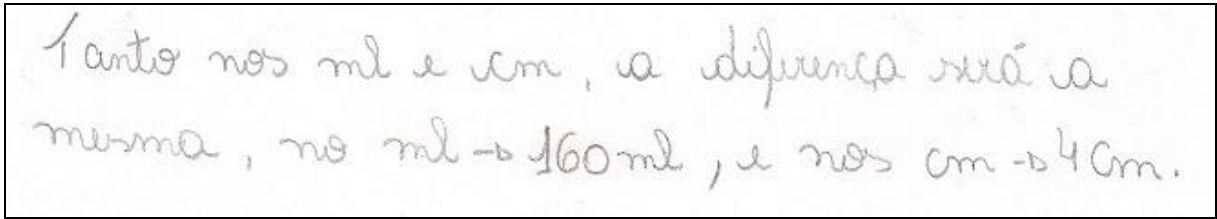 Tanto nos ml e cm, a diferença será a
mesma, no ml → 160ml, e nos cm → 4cm.